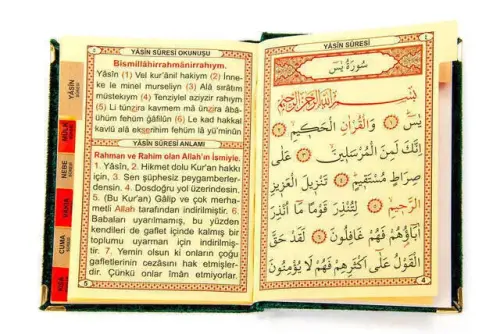 YÂSÎN SÛRESİ OKUNUŞU
Bismillâhirrahmânirrahîym.
Yâsîn (1) Vel kur'ânil hakiym (2) İnne-
ke le minel murseliyn (3) Alâ sırâtım
müstekıym (4) Tenziylel aziyzir rahiym
(5) Li tünzira kavmem mâ ünzira âbâ-
ühüm fehüm ğâfilûn (6) Le kad hakkal
kavlü alâ ekserihim fehüm lâ yü'minûn
YÂSÎN SÛRESİ ANLAMI
Rahman ve Rahim olan Allah'ın İsmiyle.
1. Yâsîn, 2. Hikmet dolu Kur'an hakkı
için, 3. Sen şüphesiz peygamberler-
densin. 4. Dosdoğru yol üzerindesin.
5. (Bu Kur'an) Gâlip ve çok merha-
metli Allah tarafından indirilmiştir. 6.
Babaları uyarılmamış, bu yüzden
kendileri de gaflet içinde kalmış bir
toplumu uyarman için indirilmiş-
tir. 7. Yemin olsun ki onların çoğu
gafletlerinin cezasını hak etmişler-
dir. Çünkü onlar iman etmiyorlar.
5
YÂSÎN
MÜLK
NEBE
CUMA
KISA
YÂSÎN SÛRESİ
سُورَةُ يٰسٓ
بِسْمِ اللّٰهِ الرَّحْمٰنِ الرَّحِيمِ
يٰسٓ ﴿١﴾ وَالْقُرْاٰنِ الْحَكِيمِ ﴿٢﴾
اِنَّكَ لَمِنَ الْمُرْسَلِينَ ﴿٣﴾ عَلٰى
صِرَاطٍ مُسْتَقِيمٍ ﴿٤﴾ تَنْزِيلَ الْعَزِيزِ
الرَّحِيمِ ﴿٥﴾ لِتُنْذِرَ قَوْمًا مَٓا اُنْذِرَ
اٰبَٓاؤُهُمْ فَهُمْ غَافِلُونَ ﴿٦﴾ لَقَدْ حَقَّ
الْقَوْلُ عَلٰٓى اَكْثَرِهِمْ فَهُمْ لَا يُؤْمِنُونَ
4